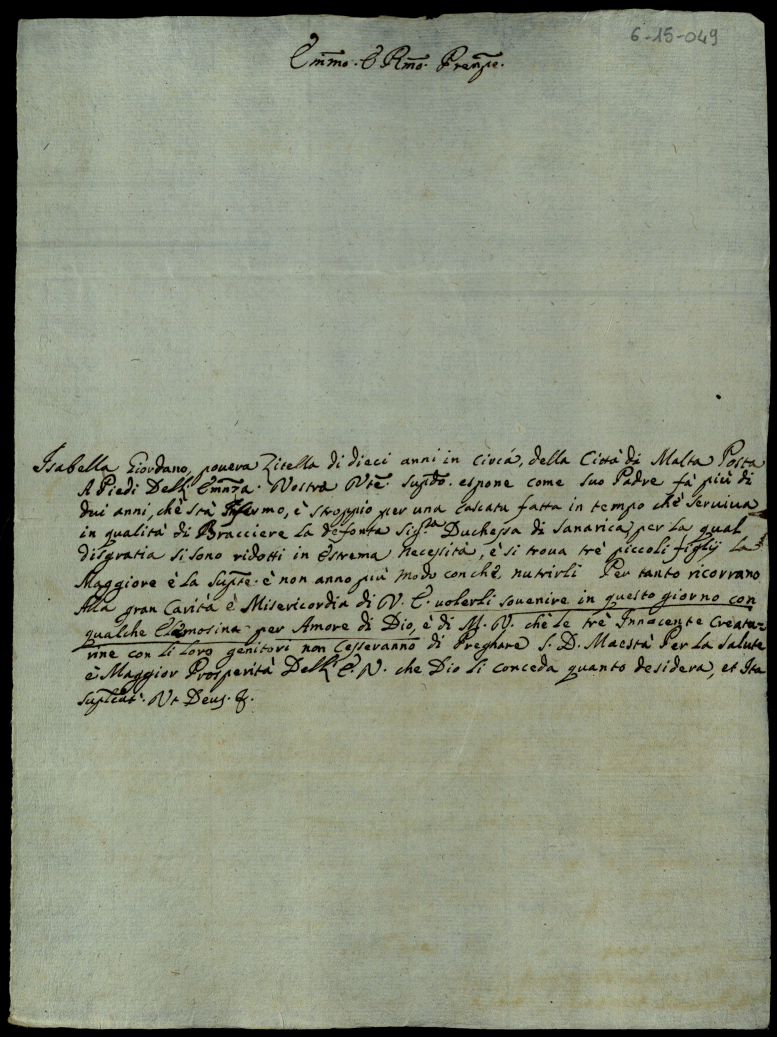 6-15-049
Emmo. E Rmo. Prenpe.
Isabella Giordano, povera Zitella di dieci anni in circa, della Città di Malta Posta
A Piedi Dell' Emnza. Vostra Vte. Suppdo. espone come suo Padre fà più di
dui anni, ch'è stà Infermo, è stroppio per una cascata fatta in tempo ch'è serviva
in qualità di Bracciere la defonta Sigra. Duchessa di Sanarica, per la qual
disgratia si sono ridotti in estrema necessità, è si trova trè piccoli figlij la
Maggiore è la Suppte. è non anno più modo con chè nutrirli Per tanto ricorrano
Alla gran Carità è Misericordia di V. E. volerli sovenire in questo giorno con
qualche Elemosina per Amore di Dio, è di M. V. chè le trè Innocente Creatu-
rine con li Loro genitori non Cesseranno di Pregnare S. D. Maestà Per la Salute
è Maggior Prosperità Dell' E. V. che Dio li conceda quanto desidera, et Ita
supplicat. Vt Deus. &.